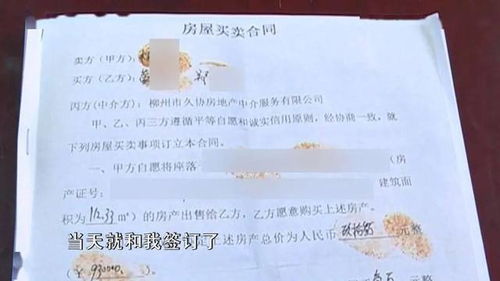 房屋买卖合同
卖方（甲方）：
买方（乙方）： 郑
丙方（中介方）：柳州市久协房地产中介服务有限公司
甲、乙、丙三方遵循平等自愿和诚实信用原则，经协商一致，就
下列房屋买卖事项订立本合同。
一、甲方自愿将座落 （房
产证号： 建筑面
积为112.33㎡）的房产出售给乙方，乙方愿意购买上述房产。
上述房产总价为人民币 元整
（￥930000
元整
当天就和我签订了